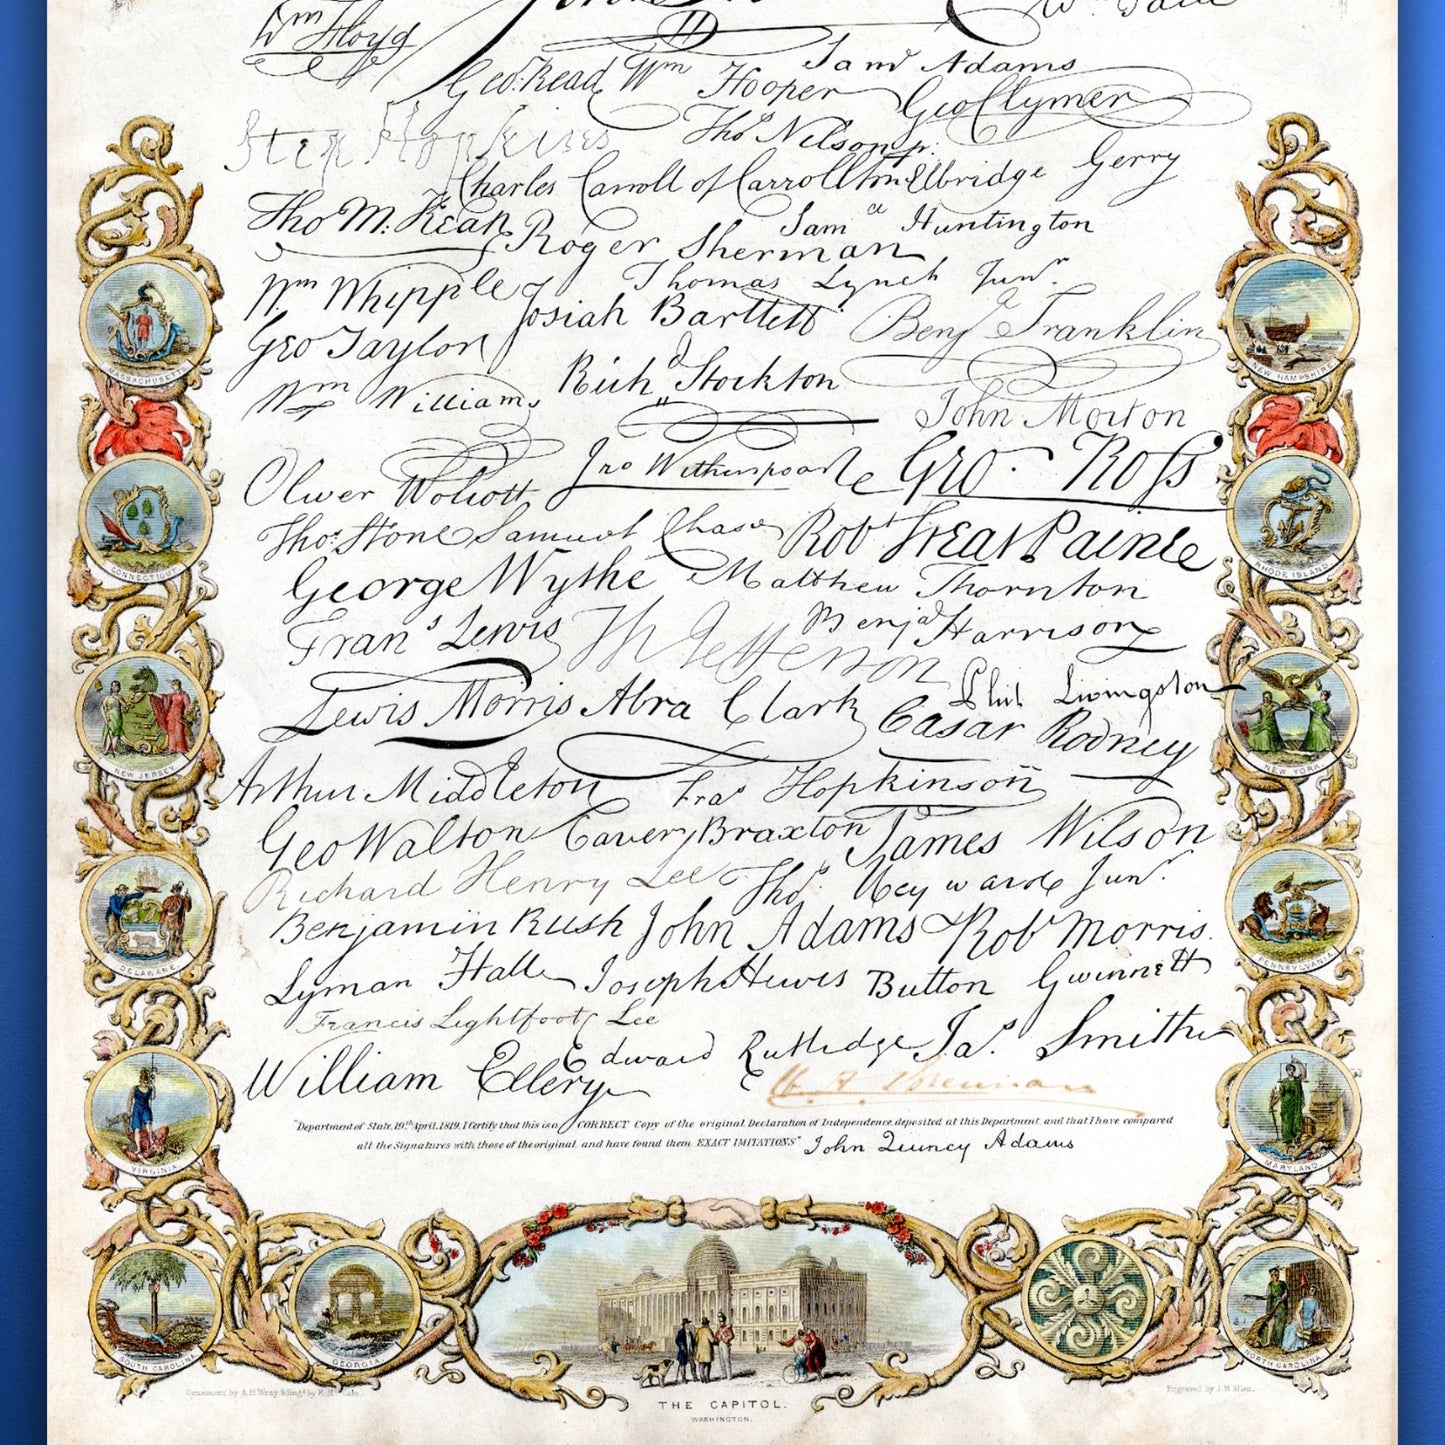 Wm Floyd
Geo. Read Wm Hooper Saml Adams
Geo Clymer
Step Hopkins Thos Nelson jr.
Charles Carroll of Carrollton Elbridge Gerry
Tho M. Kean Roger Sherman Sam el Huntington
Wm Whipple Thomas Lynch Junr.
Josiah Bartlett Benja Franklin
Geo Taylor Richd Stockton
Wm Williams John Morton
Oliver Wolcott Jno Witherspoon Geo. Ross
Thos. Stone Samuel Chase Robt Treat Paine
George Wythe Matthew Thornton
Frans Lewis Th Jefferson Benja Harrison
Lewis Morris Abra Clark Phil Livingston
Casar Rodney
Arthur Middleton Fras Hopkinson
Geo Walton Carter Braxton James Wilson
Richard Henry Lee Thos. Heyward Junr.
Benjamin Rush John Adams Robt Morris.
Lyman Hall Joseph Hewes Button Gwinnett
Francis Lightfoot Lee
William Ellery Edward Rutledge Jas. Smith
"Department of State, 19th April, 1819. I Certify that this is a CORRECT Copy of the original Declaration of Independence, deposited at this Department, and that I have compared
all the Signatures with those of the original, and have found them EXACT IMITATIONS" John Quincy Adams
MASSACHUSETTS
NEW HAMPSHIRE
CONNECTICUT
RHODE ISLAND
NEW JERSEY
NEW YORK
DELAWARE
PENNSYLVANIA
VIRGINIA
MARYLAND
SOUTH CAROLINA
GEORGIA
NORTH CAROLINA
Engraved by J. W. Allen.
THE CAPITOL.
WASHINGTON.